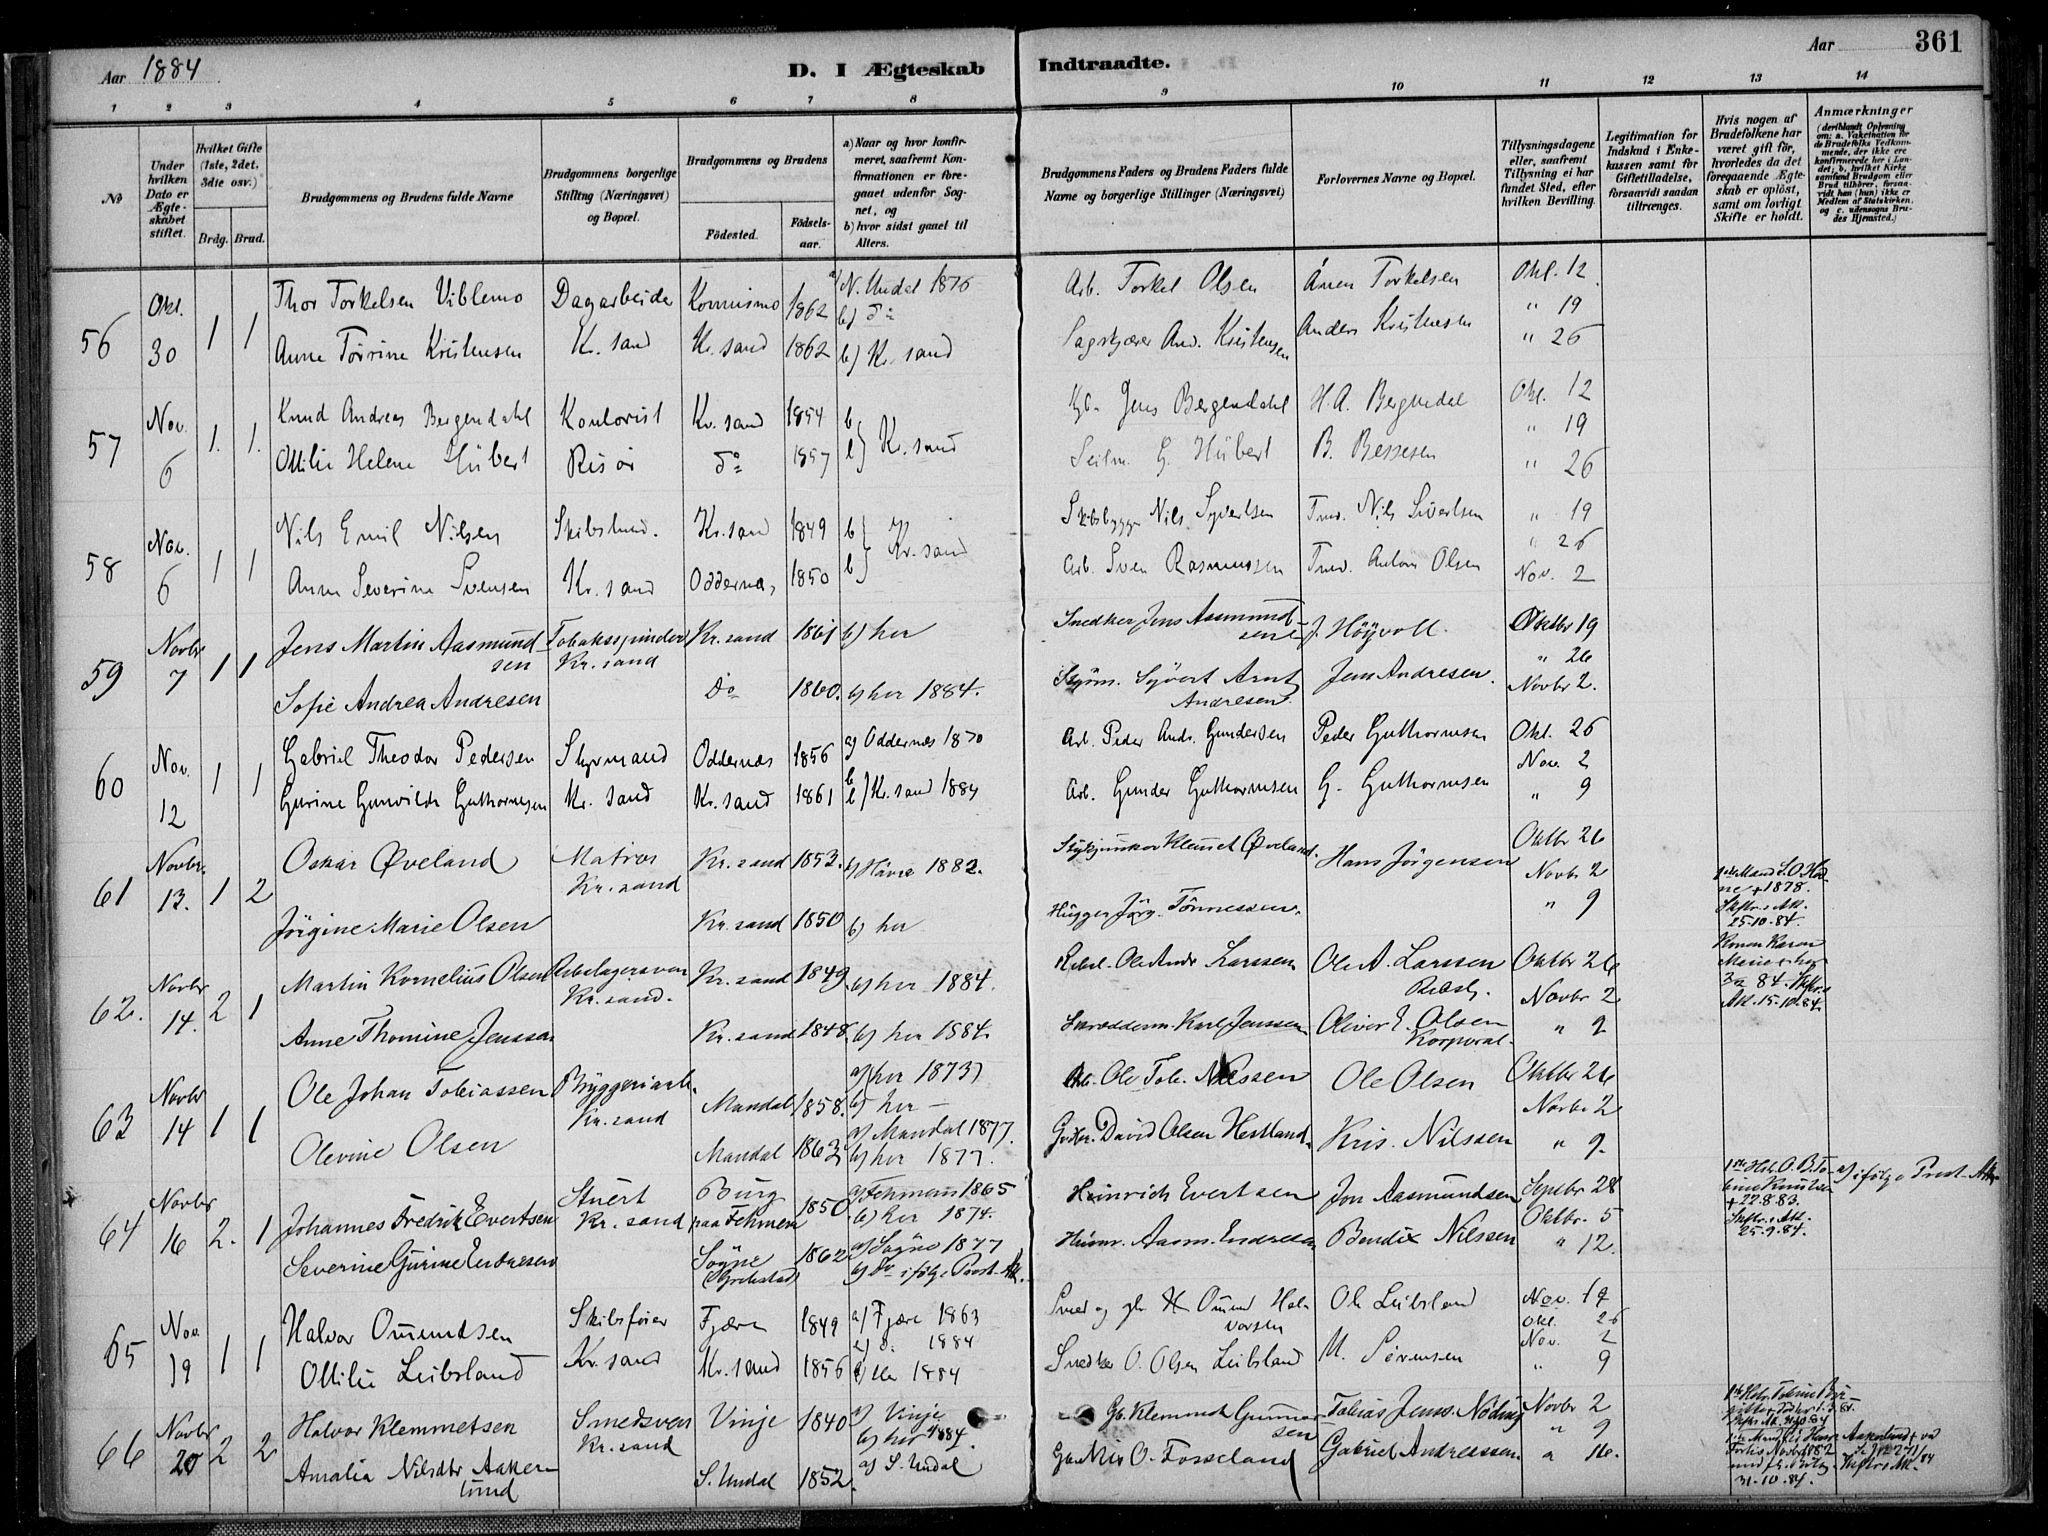 Aar 1884
D. I Ægteskab Indtraadte.
Aar
361
1 2 3 4 5 6 7 8 9 10 11 12 13 14
No
Under hvilken Dato er Ægteskabet stiftet.
Hvilket Gifte (1ste, 2det, 3die osv.)
Brdg. Brud.
Brudgommens og Brudens fulde Navne
Brudgommens borgerlige Stilling (Næringsvei) og Bopæl.
Brudgommens og Brudens
Födested.
Födselsaar.
a) Naar og hvor konfirmeret, saafremt Konfirmationen er foregaaet udenfor Sognet, og
b) hvor sidst gaaet til Alters.
Brudgommens Faders og Brudens Faders fulde Navne og borgerlige Stillinger (Næringsvei)
Forlovernes Navne og Bopæl.
Tillysningsdagene eller, saafremt Tillysning ei har fundet Sted, efter hvilken Bevilling.
Legitimation for Indskud i Enkekassen samt for Giftetilladelse, forsaavidt saadan tiltrænges.
Hvis nogen af Brudefolkene har været gift för, hvorledes da det foregaaende Ægteskab er oplöst, samt om lovligt Skifte er holdt.
Anmærkninger
(deriblandt Oplysning om: a. Vakcination for de Brudefolks Vedkommende, der ikke ere konfirmerede her i Landet; b. hvilket Kirkesamfund Brudgom eller Brud tilhörer, forsaavidt han (hun) ikke er Medlem af Statskirken, og c. udensogns Brudes Hjemsted.)
56 Okt. 30 1 1 Thor Torkelsen Viblemo Dagarbeider 1862 a) N. Undal 1876 b) do Arb. Torkel Olsen Ånen Torkelsen Okt. 12
" 19
Anne Törrine Kristensen Kr. sand Kr. sand 1862 b) Kr. sand And. Kristensen Anders Kristensen " 26
57 Nov. 6 1. 1. Knud Andreas Bergendahl Kontorist Kr. sand 1854 b Jens Bergendahl H. A. Bergendal Okt. 12
" 19
Ottilie Helene Hübert Risör do 1857 b} Kr. sand Seilm. G. Hübert B. Bessesen " 26
58 Nov. 6 1 1 Nils Emil Nilsen Kr. sand 1849 b Skibsbygger Nils Syvertsen Nils Sivertsen " 19
" 26
Anne Severine Svensen Kr. sand Oddernæs 1850 b} Kr. sand Arb. Sven Rasmussen Anton Olsen Nov. 2
59 Novbr 7 1 1 Jens Martin Aasmundsen Tobaksspinder Kr. sand Kr. sand 1861 b) her Snedker Jens Aasmundsen J. Höyvoll. Oktbr 19
" 26
Sofie Andrea Andresen do 1860. b) her 1884. Syvert Arnt Andresen. Jens Andresen. Novbr 2.
60 Nov. 12 1 1 Gabriel Theodor Pedersen Styrmand Oddernæs 1856 a) Oddernæs 1870 Arb. Peder Andr. Gundersen Peder Guthormsen Okt. 26
Nov. 2
Gurine Gunvilde Guthormsen Kr. sand Kr. sand 1861 b} Kr. sand 1884 Arb. Gunder Guthormsen G. Guthormsen " 9
61 Novbr. 13. 1 2 Oskar Øveland Matros Kr. sand Kr. sand 1853. b) Havre 1882. Klemet Øveland. Hans Jörgensen Oktbr 26
Novbr 2
Jörgine Marie Olsen Kr. sand 1850 b) her Hugger Jörg. Tönnessen. " 9
62. Novbr 14. 2 1 Martin Kornelius Olsen Rebslagersven Kr. sand. Kr. sand 1849. b) her 1884. Ole Andr Larssen Ole A. Larssen Oktbr 26
Novbr 2
Anne Thomine Jenssen Kr. sand 1848. b) her 1884. Skrædderm. Karl Jenssen Oliver E. Olsen Korporal. " 9
63 Novbr 14 1 1 Ole Johan Tobiassen Bryggeriarb. Kr. sand Mandal 1858. a) her 1873) b) her — Arb. Ole Tob. Nilssen Ole Olsen Oktbr 26
Novbr 2
Olevine Olsen Mandal 1863 a) Mandal 1877. b) her 1877. David Olsen Kris. Nilssen " 9.
64 Novbr 16 2. 1 Johannes Fredrik Evertsen Stuert Kr. sand Burg paa Fehmern 1850 a) Fehmern 1865 b) her 1874. Heinrich Evertsen Jon Aasmundsen Septbr 28
Oktbr. 5
Severine Gurine Endresen Søgne 1862 a) Søgne 1877 b) do ifölge Prest. Att. Aasm. Endresen Bendix Nilssen " 12.
+22.8.83. Skftr. Att. 25.9.84.
a) ifölge Prest. Att.
65 Nov. 19 1 1 Halvor Omundsen Skibsfører Fjære 1849 a) Fjære 1863 1884 Omund Halvorsen Ole Leibsland Nov. 19
Okt. 26
Nov. 2
Ottilie Leibsland Kr. sand Kr. sand 1856 1884 Snedker O. Olsen Leibsland M. Sörensen " 9
66 Novbr 20 2 2 Halvor Klemmetsen Smedsven Kr. sand Vinje 1840 a) Vinje b) her 1884. Gb. Klemmet Gunnarsen Tobias Jens. Nöding Novbr 2
" 9
Amalia Nilsdtr Aakerlund S. Undal 1852. a) S. Undal Gb. Nils O. Fosseland Gabriel Andreassen " 16.
31.10.84.